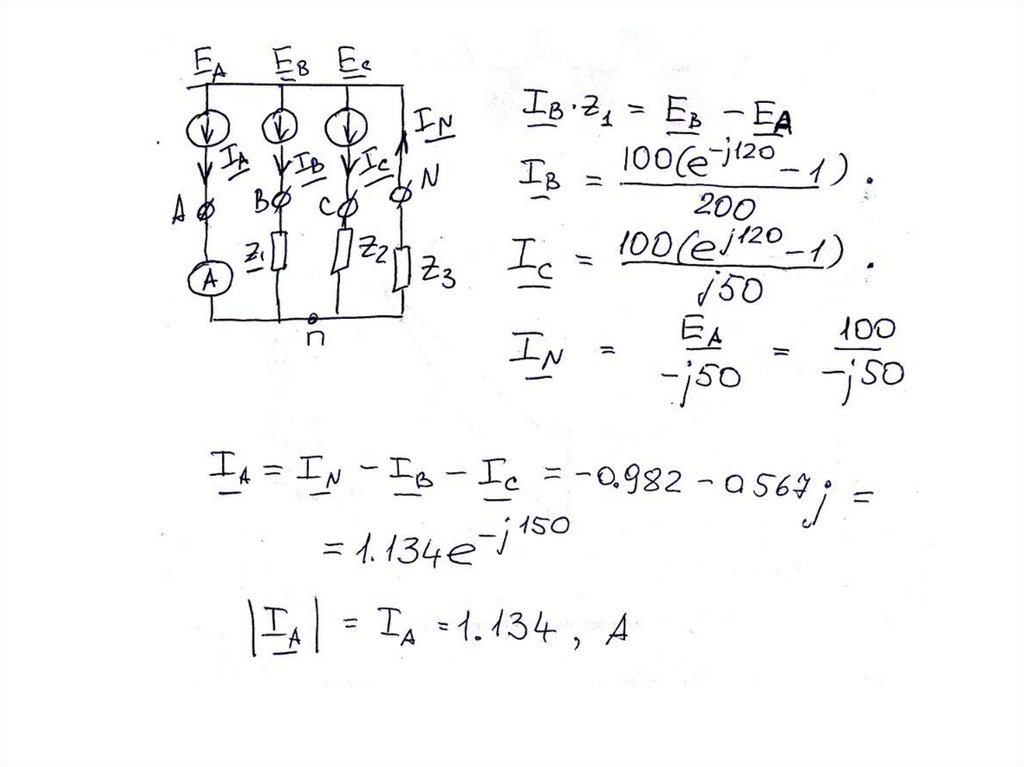 E_A E_B E_C
I_N
I_A I_B I_C N
A B C
A Z1 Z2 Z3
n
I_B · Z1 = E_B - E_A
I_B = 100(e^-j120 - 1) / 200 .
I_C = 100(e^j120 - 1) / j50 .
I_N = E_A / -j50 = 100 / -j50
I_A = I_N - I_B - I_C = -0.982 - 0.567j =
= 1.134e^-j150
|I_A| = I_A = 1.134, A